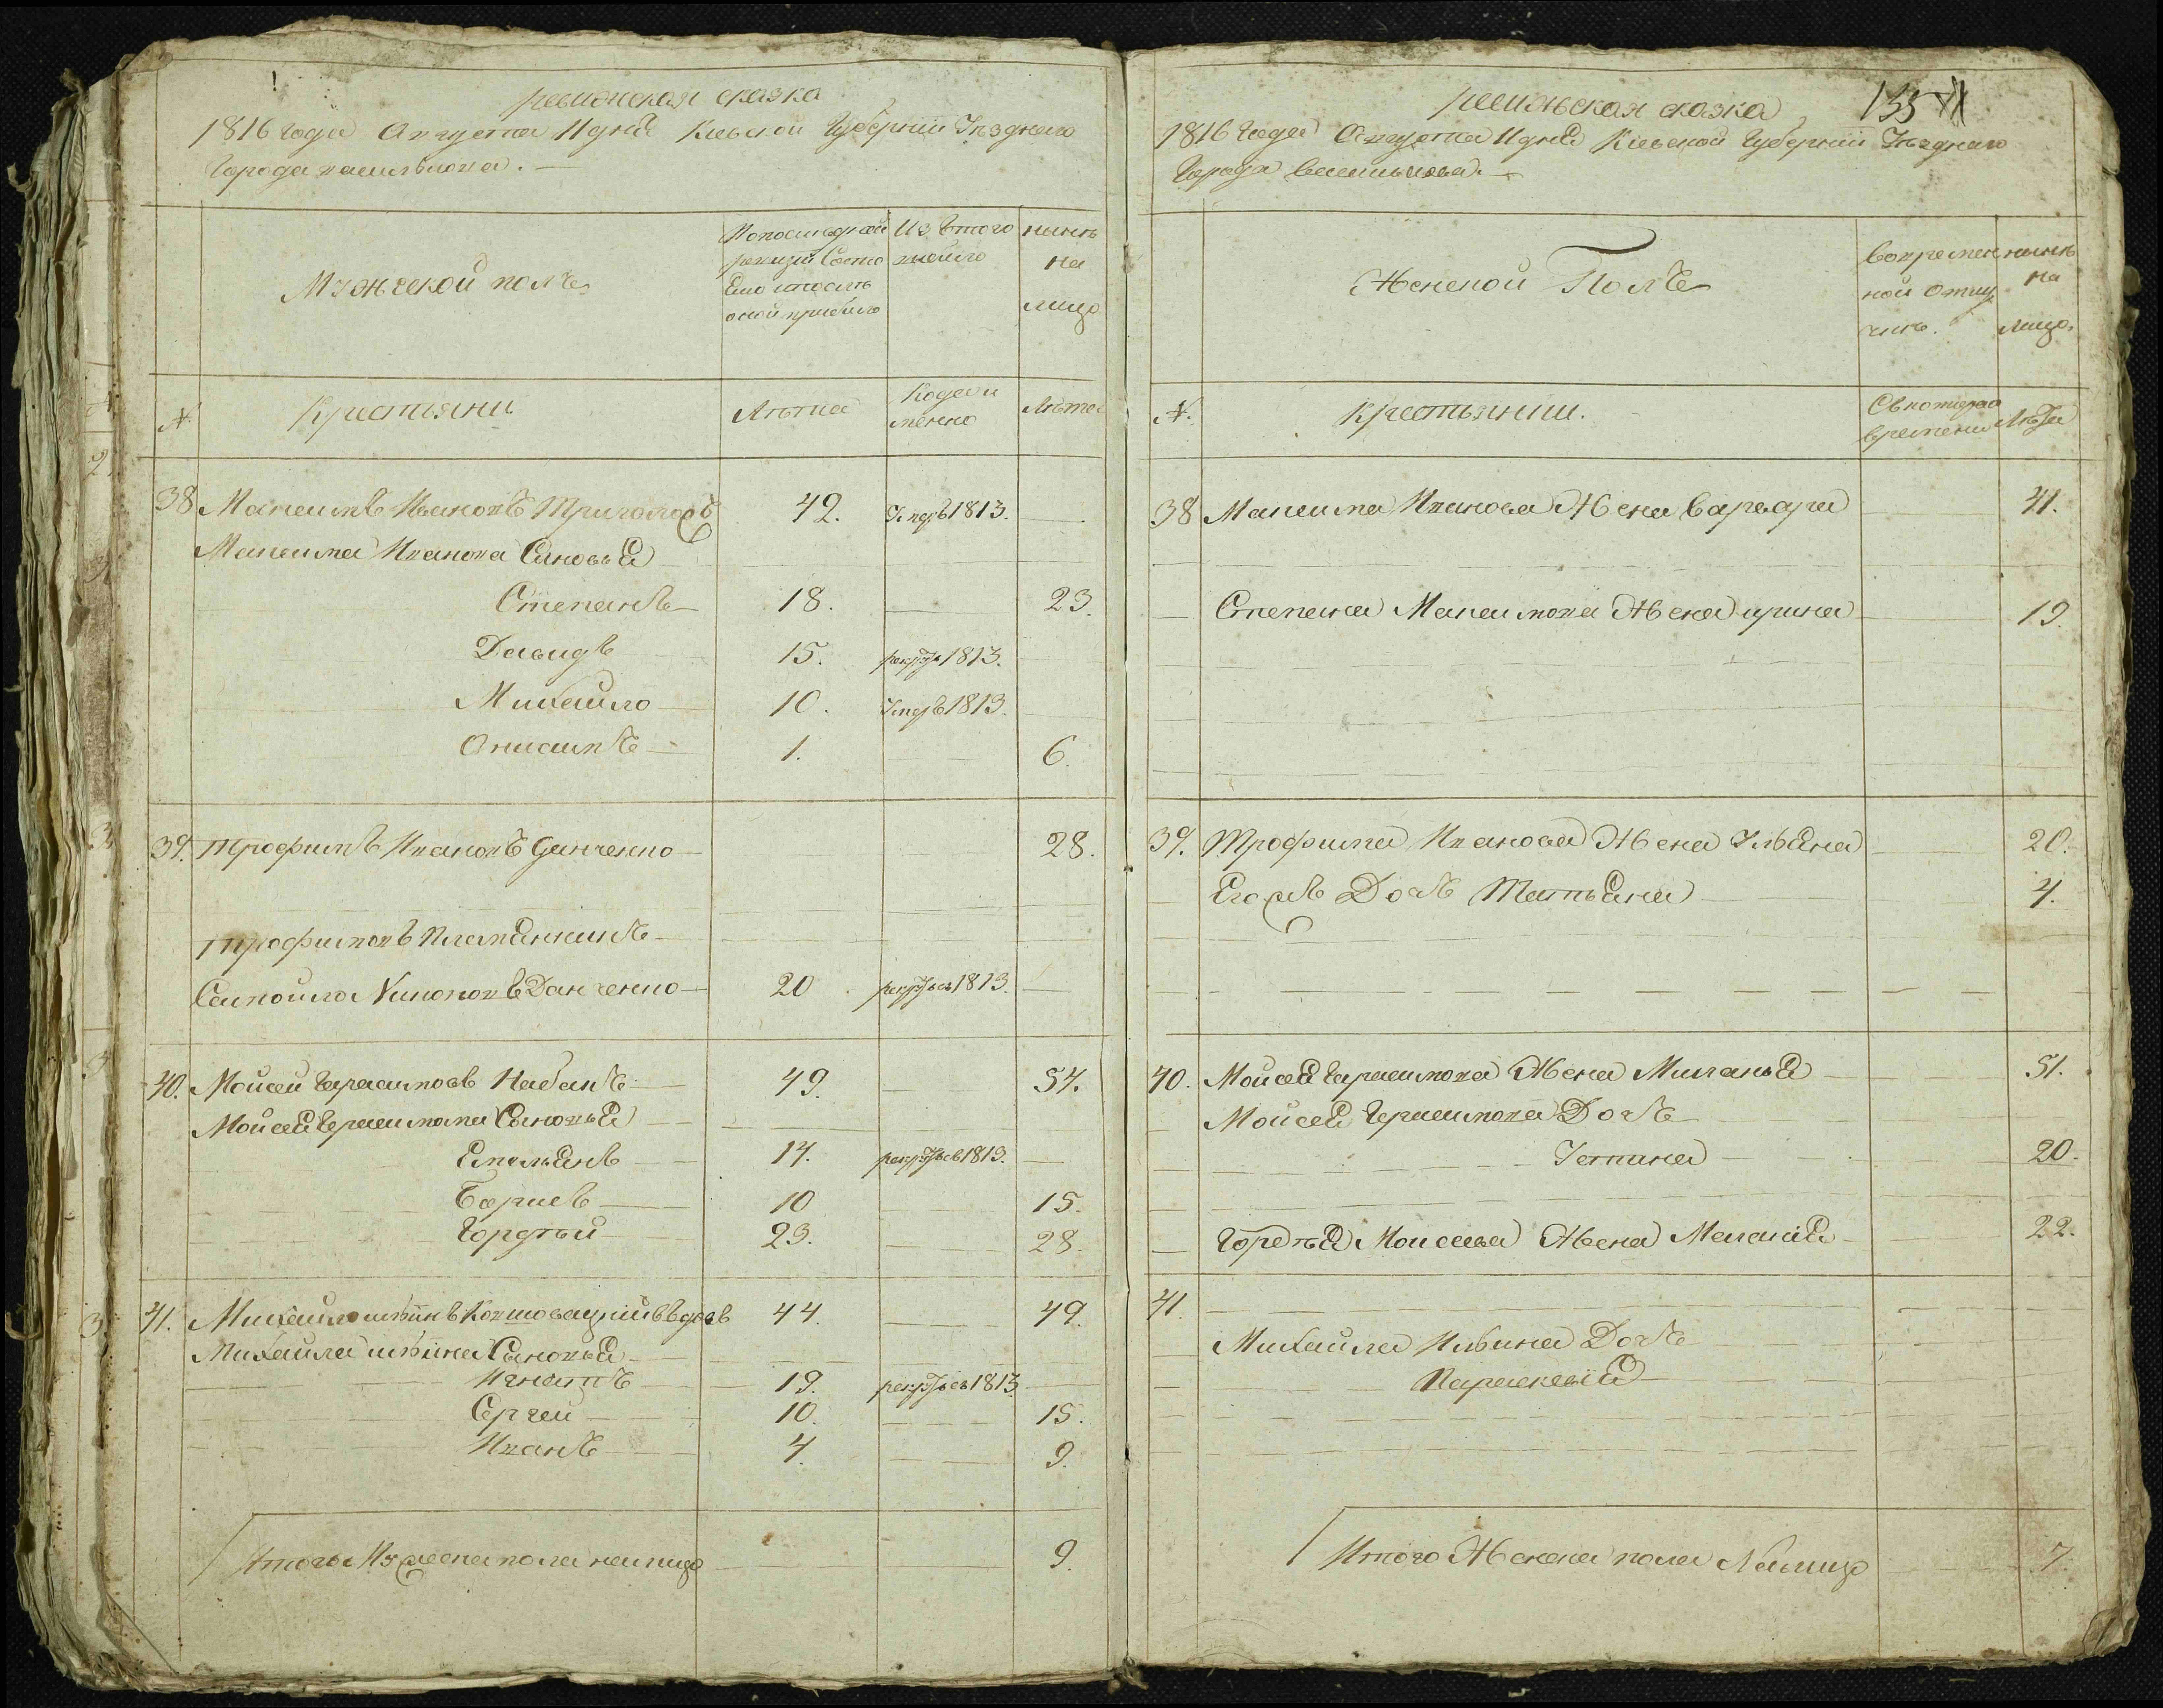 ревизская сказка
1816 года Августа 11 дня Киевской Губернии Уездного
Города василькова. —
Мужеской полъ
По последней ревизии Состояло и после оной прибыло
Из Того выбыло
ныне на лицо
№
Крестьяни
Лета
Когда и менно
Лета
38 Максимъ Ивановъ
42. Умеръ 1813.
Максима Иванова Сыновья
Степанъ 18. — 23.
Давидъ 15. рекрутъ 1813.
Михайло 10. Умеръ 1813.
Анисимъ 1. 6.
39. Трофимъ Ивановъ Данченко 28.
Трофимовъ Племянникъ
Самойло Данченко 20. рекрутъ 1813.
40. Мойсей Герасимовъ Кабанъ 49. — 54.
Мойсея Герасимова Сыновья
Емельянъ 17. рекрутъ 1813.
Борисъ 10 15.
Гордѣй 23. 28.
41. Михайло Ильинъ 44. 49.
Михайла Ильина Сыновья
Игнатъ 19. рекрутъ 1813
Сергей 10. 15.
Иванъ 4. 9.
Итого Мужеска пола налицо 9.
ревизская сказка
135
1816 года Августа 11 дня Киевской Губернии Уездного
Города василькова. —
Женской Полъ
Во временной отлучке.
ныне на лицо.
№.
Крестьянки.
С которого времени
Лета
38 Максима Иванова Жена варвара 41.
Степана Максимова Жена ирина 19.
39. Трофима Иванова Жена Ульяна 20.
Его Дочь Татьяна 4.
40. Мойсея Герасимова Жена Миланья 51.
Мойсея Герасимова Дочь
Устина 20.
Гордѣя Моисеева Жена Мелания 22.
41
Михайла Ильина Дочь
Параскевия
Итого Женска пола Налицо 7.